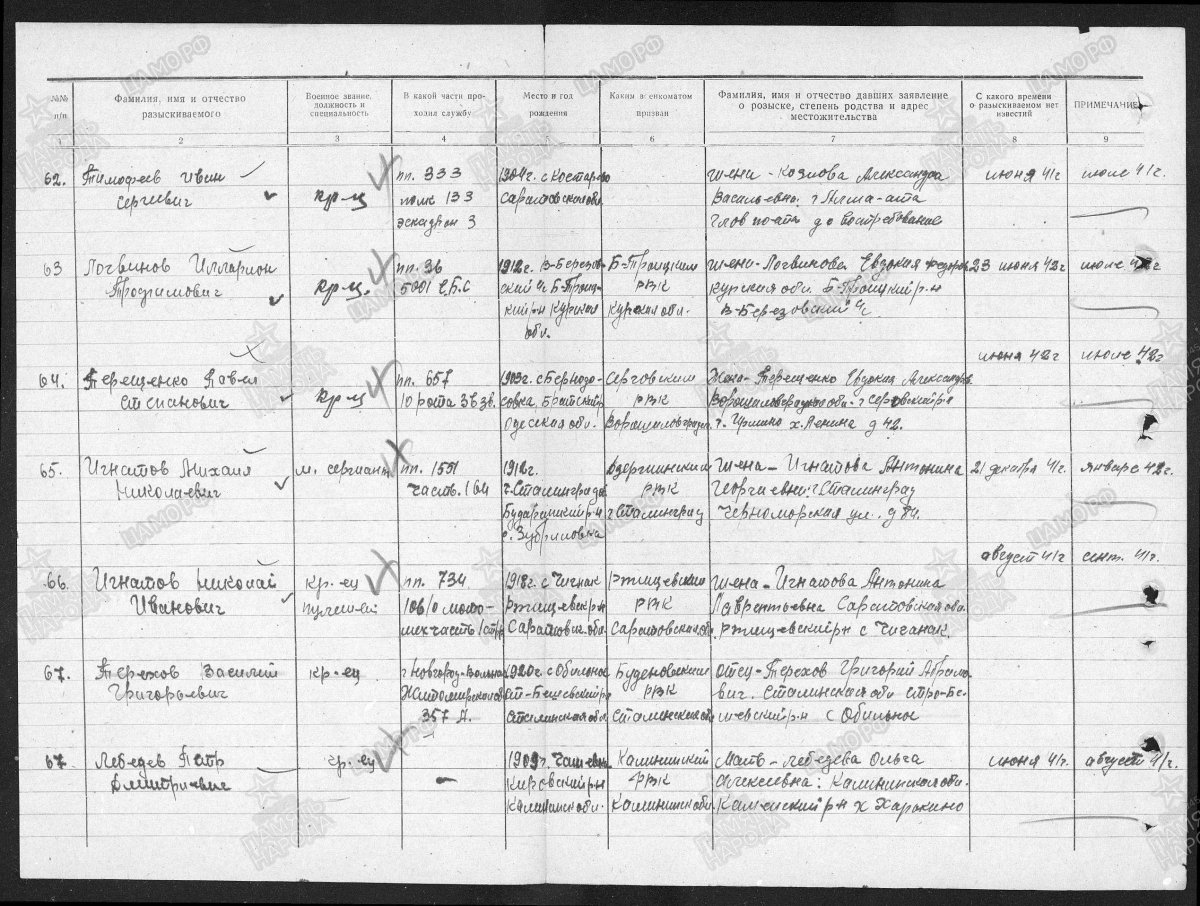 №№ п/п
Фамилия, имя и отчество разыскиваемого
Военное звание, должность и специальность
В какой части проходил службу
Место и год рождения
Каким в енкоматом призван
Фамилия, имя и отчество давших заявление о розыске, степень родства и адрес местожительства
С какого времени о разыскиваемом нет известий
ПРИМЕЧАНИЕ
1 2 3 4 5 6 7 8 9
62. Тимофеев Иван пп. 333 1904г. с Костарево жена - Козлова Александра июня 41г июле 41г.
Сергеевич кр-ц полк 133 Саратовск обл Васильевна. г Алма-ата
эскадрон 3 Главпо-ата до востребования
63 Логвинов Илларион пп. 36 1912г. В-Березов- Б-Троицким жена - Логвинова Евдокия Федоров 23 июня 42г июле 42г
Трофимович кр-ц. 5001 Е.Б.С ский с/с Б-Троиц- РВК Курская обл. Б-Троицкий р.н
кий р.н Курская Курская обл. В-Березовский с/с
обл.
июня 42г июле 42г
64. Терещенко Павел пп. 657 1903г. с Бернадо- Серговским Жена - Терещенко Евдокия Александров
Степанович кр-ц 10 рота 3 взв. совка, Братский РВК Ворошиловградской обл. г Серговский р-н
Одесская обл. Ворошиловградск. г. Ирмино х. Ленина д 42.
65. Игнатов Михаил м. сержант пп. 1551 1912г. Дзержинским жена - Игнатова Антонина 21 декабря 41г. январе 42г.
Николаевич часть. 164 г. Сталинград РВК Георгиевна: г Сталинград
р-н г Сталинград Черноморская ул. д 84.
с. Зубриловка
август 41г сент. 41г.
66. Игнатов Николай кр-ец пп. 734 1918г. с Чигнак Ртищевским жена - Игнатова Антонина
Иванович мото- Ртищевск р-н РВК Лаврентьевна Саратовская обл.
мех часть Саратовск обл. Саратовская обл. Ртищевский р-н с Чиганак.
67. Терехов Василий кр-ец г Новгород-Волынск 1920г. с Обильное Буденовским отец - Терехов Григорий Абрамо
Григорьевич Житомирской обл Ст-Бешевский р-н РВК вич. Сталинская обл Старо-Бе-
357 Д. Сталинская обл Сталинской обл шевский р-н с Обильное
67. Лебедев Петр кр-ец 1909г. Калининский Мать - Лебедева Ольга июня 41г. август 41г.
Дмитриевич - Кировский р-н РВК Алексеевна: Калининская обл.
Калининск обл. Калининск обл. Каменский р-н х Харокино
ЦАМО.РФ
ПАМЯТЬ НАРОДА